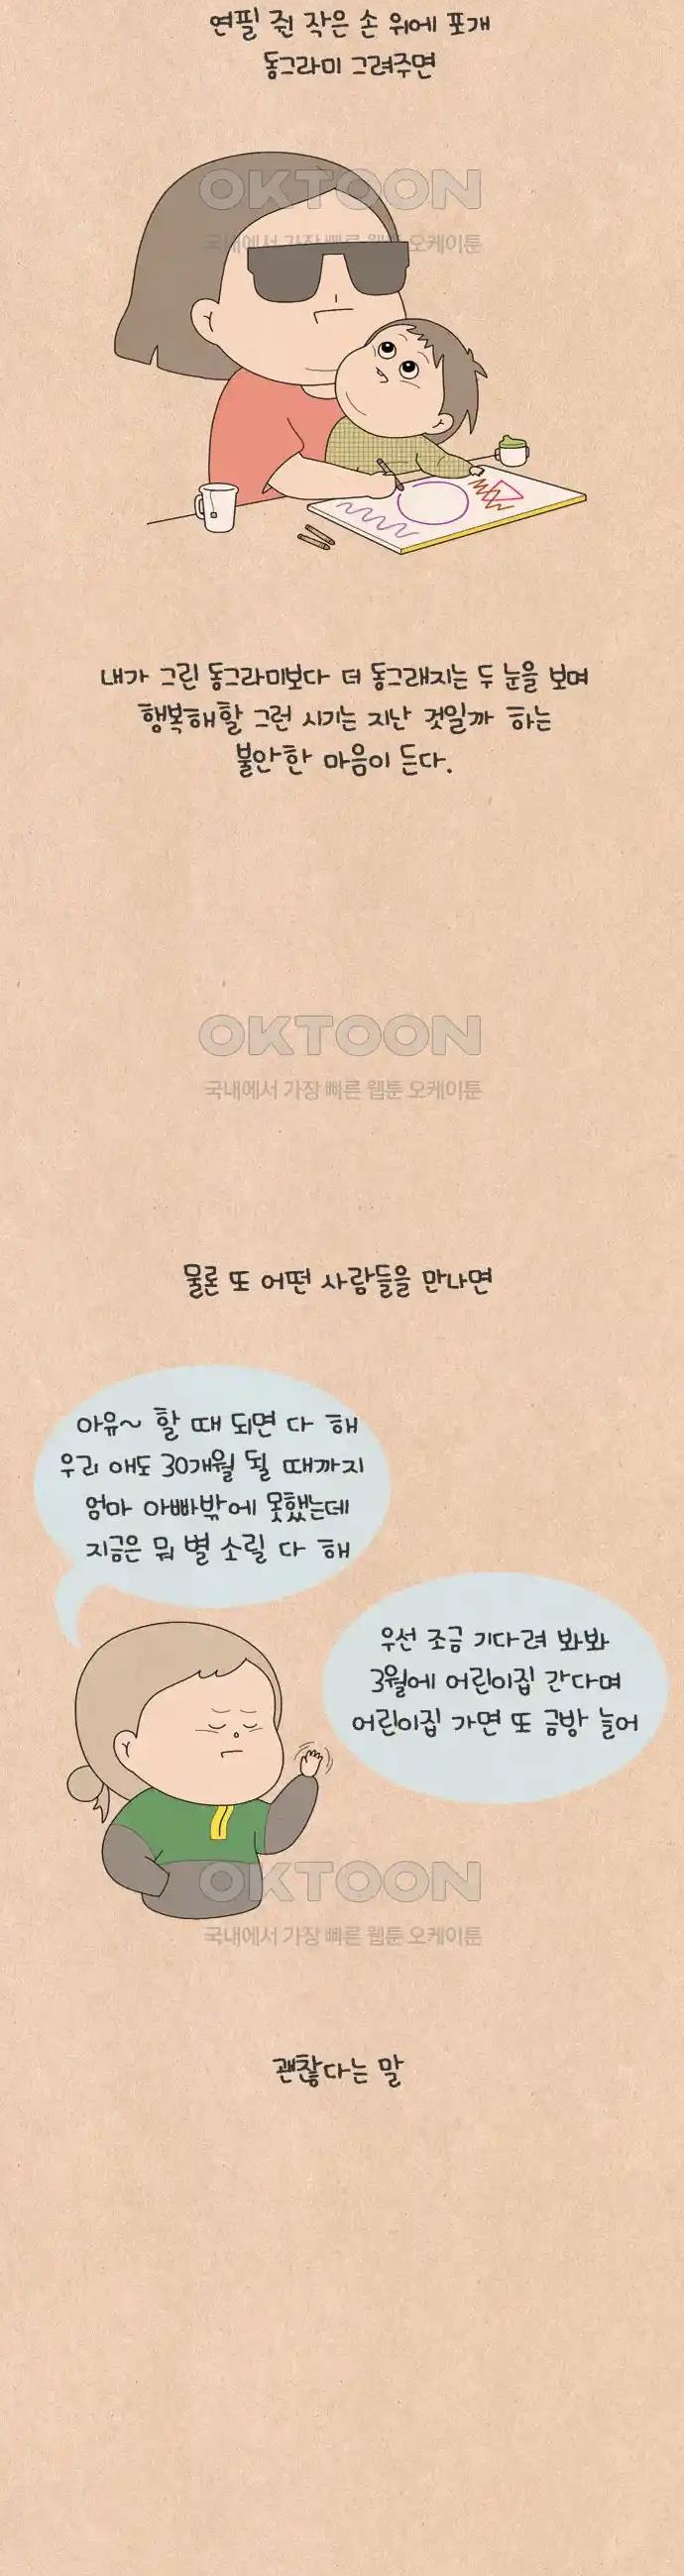 연필 쥔 작은 손 위에 포개
동그라미 그려주면
OKTOON
국내에서 가장 빠른 웹툰 오케이툰
내가 그린 동그라미보다 더 동그래지는 두 눈을 보며
행복해할 그런 시기는 지난 것일까 하는
불안한 마음이 든다.
OKTOON
국내에서 가장 빠른 웹툰 오케이툰
물론 또 어떤 사람들을 만나면
아유~ 할 때 되면 다 해
우리 애도 30개월 될 때까지
엄마 아빠밖에 못했는데
지금은 뭐 별 소릴 다 해
우선 조금 기다려 봐봐
3월에 어린이집 간다며
어린이집 가면 또 금방 늘어
OKTOON
국내에서 가장 빠른 웹툰 오케이툰
괜찮다는 말